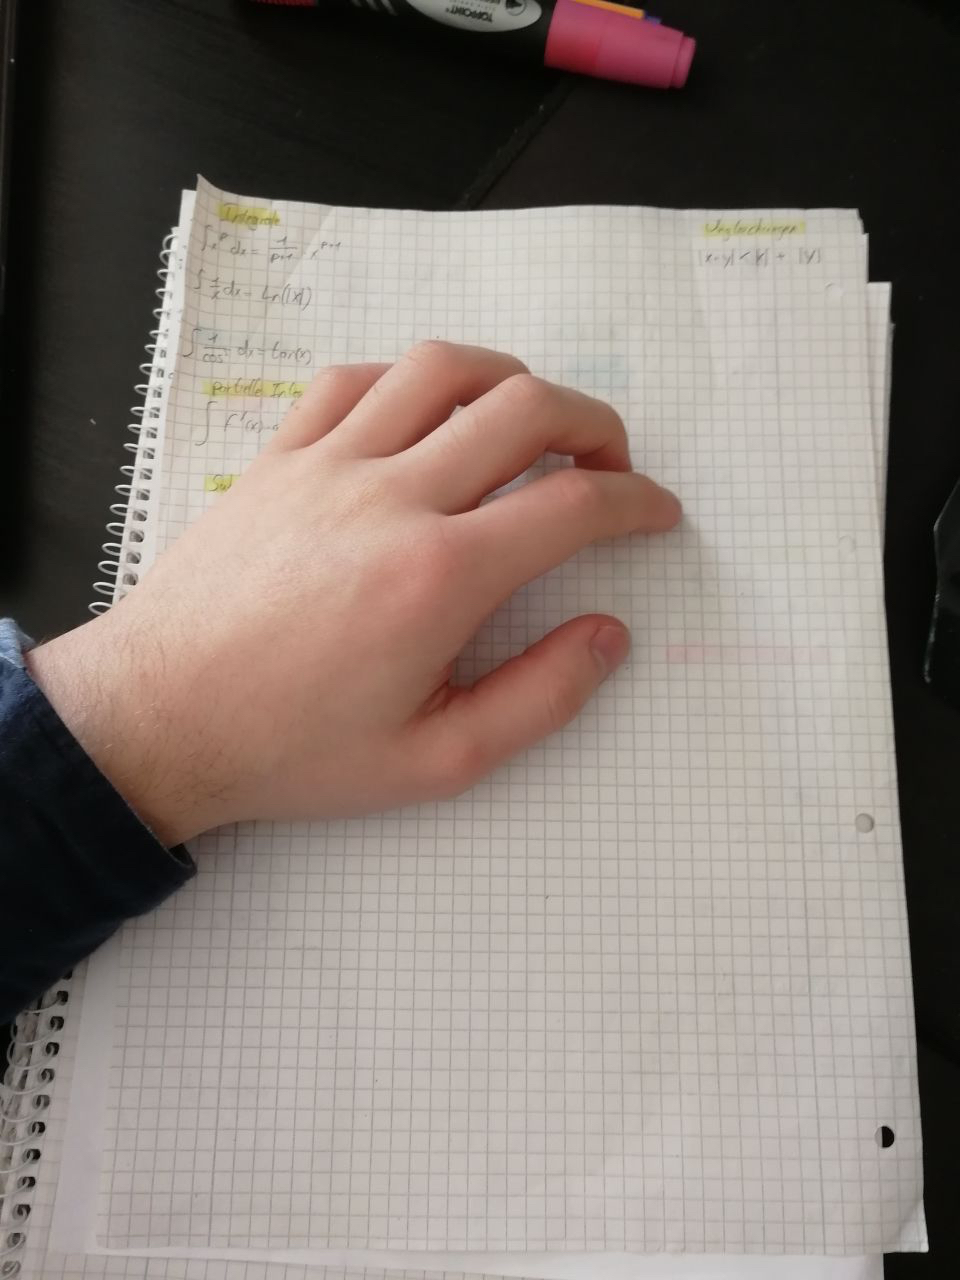 TOPPOINT
Integrale
∫ x^p dx = 1/(p+1) · x^(p+1)
∫ 1/x dx = Ln(|x|)
∫ 1/cos² dx = tan(x)
partielle Inte
∫ f'(x)
Su
Ungleichungen
|x+y| < |x| + |y|